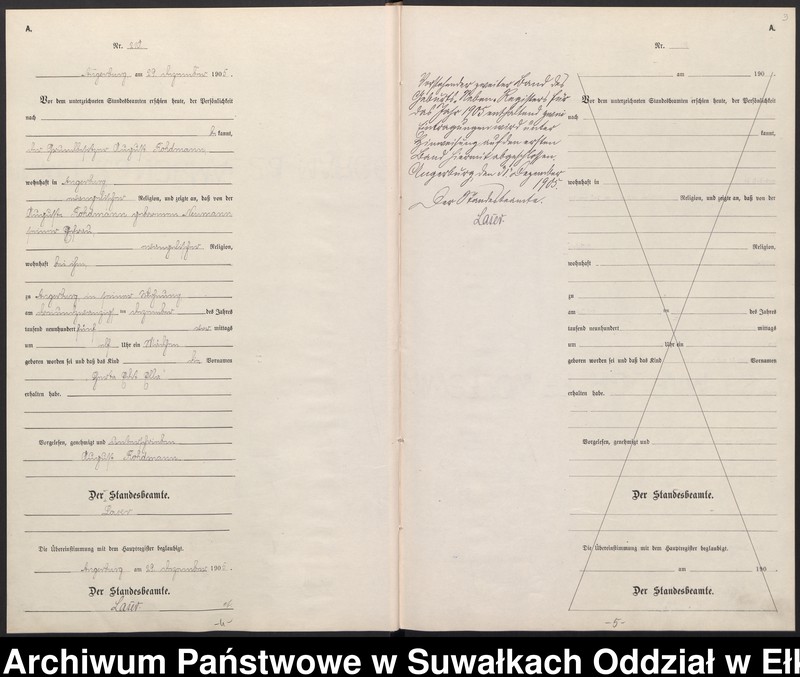 A.
Nr. 202
Angerburg am 29 Dezember 1905.
Vor dem unterzeichneten Standesbeamten erschien heute, der Persönlichkeit
nach
be kannt,
der Grundbesitzer August Fohdmann
wohnhaft in Angerburg
evangelischer Religion, und zeigte an, daß von der
Auguste Fohdmann geborenen Neumann
seiner Ehefrau,
evangelischer Religion,
wohnhaft bei ihm
zu Angerburg in seiner Wohnung
am Dezember des Jahres
tausend neunhundert fünf vor mittags
um Uhr ein Mädchen
geboren worden sei und daß das Kind die Vornamen
Ella
erhalten habe.
Vorgelesen, genehmigt und unterschrieben
August Fohdmann
Der Standesbeamte.
Lauer
Die Übereinstimmung mit dem Hauptregister beglaubigt.
Angerburg am 29 Dezember 1905.
Der Standesbeamte.
Lauer
-4-
Vorstehender zweiter Band des
Geburts-Neben-Registers für
das Jahr 1905 enthaltend zwei
Eintragungen wird unter
Hinweisung auf den ersten
Band hiermit abgeschlossen.
Angerburg, den 31. Dezember
1905.
Der Standesbeamte.
Lauer
3
A.
Nr.
am 190
Vor dem unterzeichneten Standesbeamten erschien heute, der Persönlichkeit
nach
kannt,
wohnhaft in
Religion, und zeigte an, daß von der
Religion,
wohnhaft
zu
am ten des Jahres
tausend neunhundert mittags
um Uhr ein
geboren worden sei und daß das Kind Vornamen
erhalten habe.
Vorgelesen, genehmigt und
Der Standesbeamte.
Die Übereinstimmung mit dem Hauptregister beglaubigt.
am 190
Der Standesbeamte.
-5-
Archiwum Państwowe w Suwałkach Oddział w Ełk